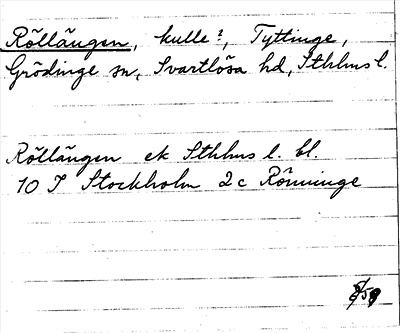 Röllängen, kulle?, Tyttinge,
Grödinge sn, Svartlösa hd, Sthlms l.
Röllängen ek Sthlms l. bl.
10 I Stockholm 2c Rönninge